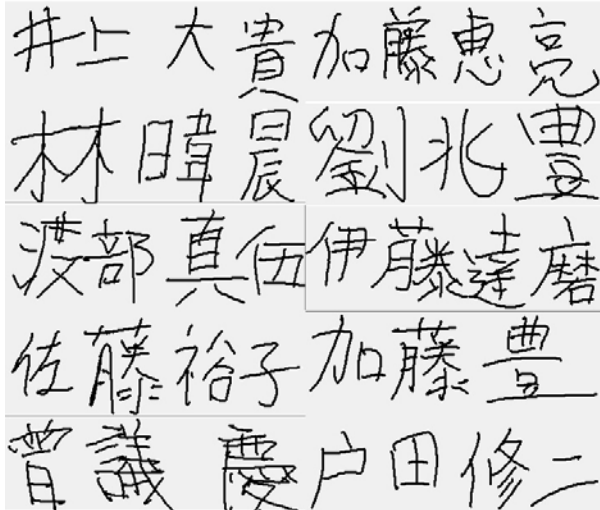 井上 大貴 加藤恵亮
林暐晨 劉兆豊
渡部真伍 伊藤達磨
佐藤裕子 加藤豊
曽議慶 戸田修二